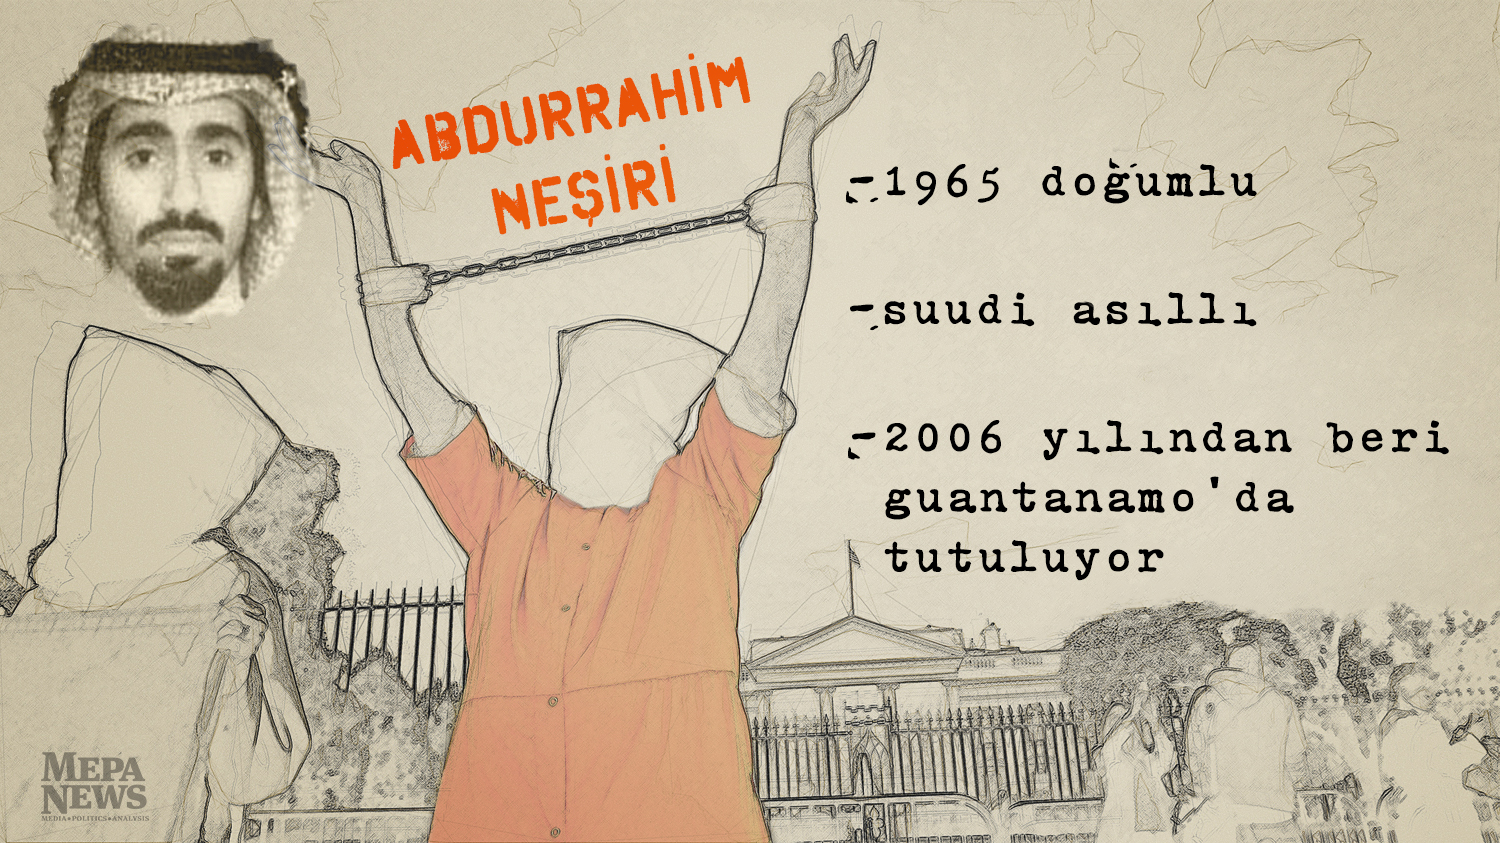 ABDURRAHİM
NEŞİRİ
-1965 doğumlu
-suudi asıllı
-2006 yılından beri
guantanamo'da
tutuluyor
MEPA
NEWS
MEDIA•POLITICS•ANALYSIS